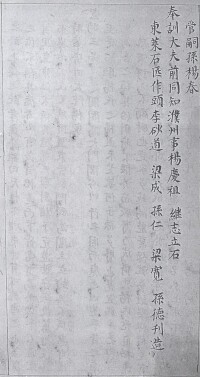 營嗣孫楊春
奉訓大夫前同知濮州事楊慶祖 繼志立石
東萊石匠作頭李砍道 梁成 孫仁 梁寬 孫德刋造